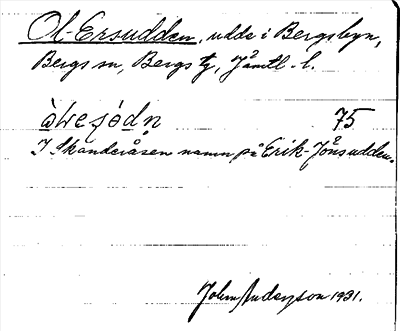 Ol-Ersudden, udde i Bergsbyn,
Bergs sn, Bergs tg, Jämtl. l.
75
I Skanderåsen namn på Erik-Jönsudden.
John Anderson 1931.